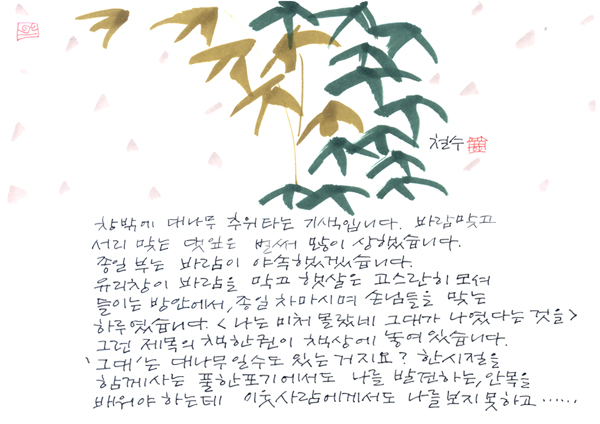 철수
창밖에 대나무 추위타는 기색입니다. 바람맞고
서리 맞는 댓잎은 벌써 많이 상했습니다.
종일 부는 바람이 야속했겠습니다.
유리창이 바람을 막고 햇살은 고스란히 모셔
들이는 방안에서, 종일 차마시며 손님들을 맞는
하루였습니다. <나는 미처 몰랐네 그대가 나였다는 것을>
그런 제목의 책한권이 책상에 놓여 있습니다.
'그대'는 대나무일수도 있는 거지요? 한시절을
함께사는 풀한포기에서도 나를 발견하는, 안목을
배워야 하는데 이웃사람에게서도 나를보지못하고……